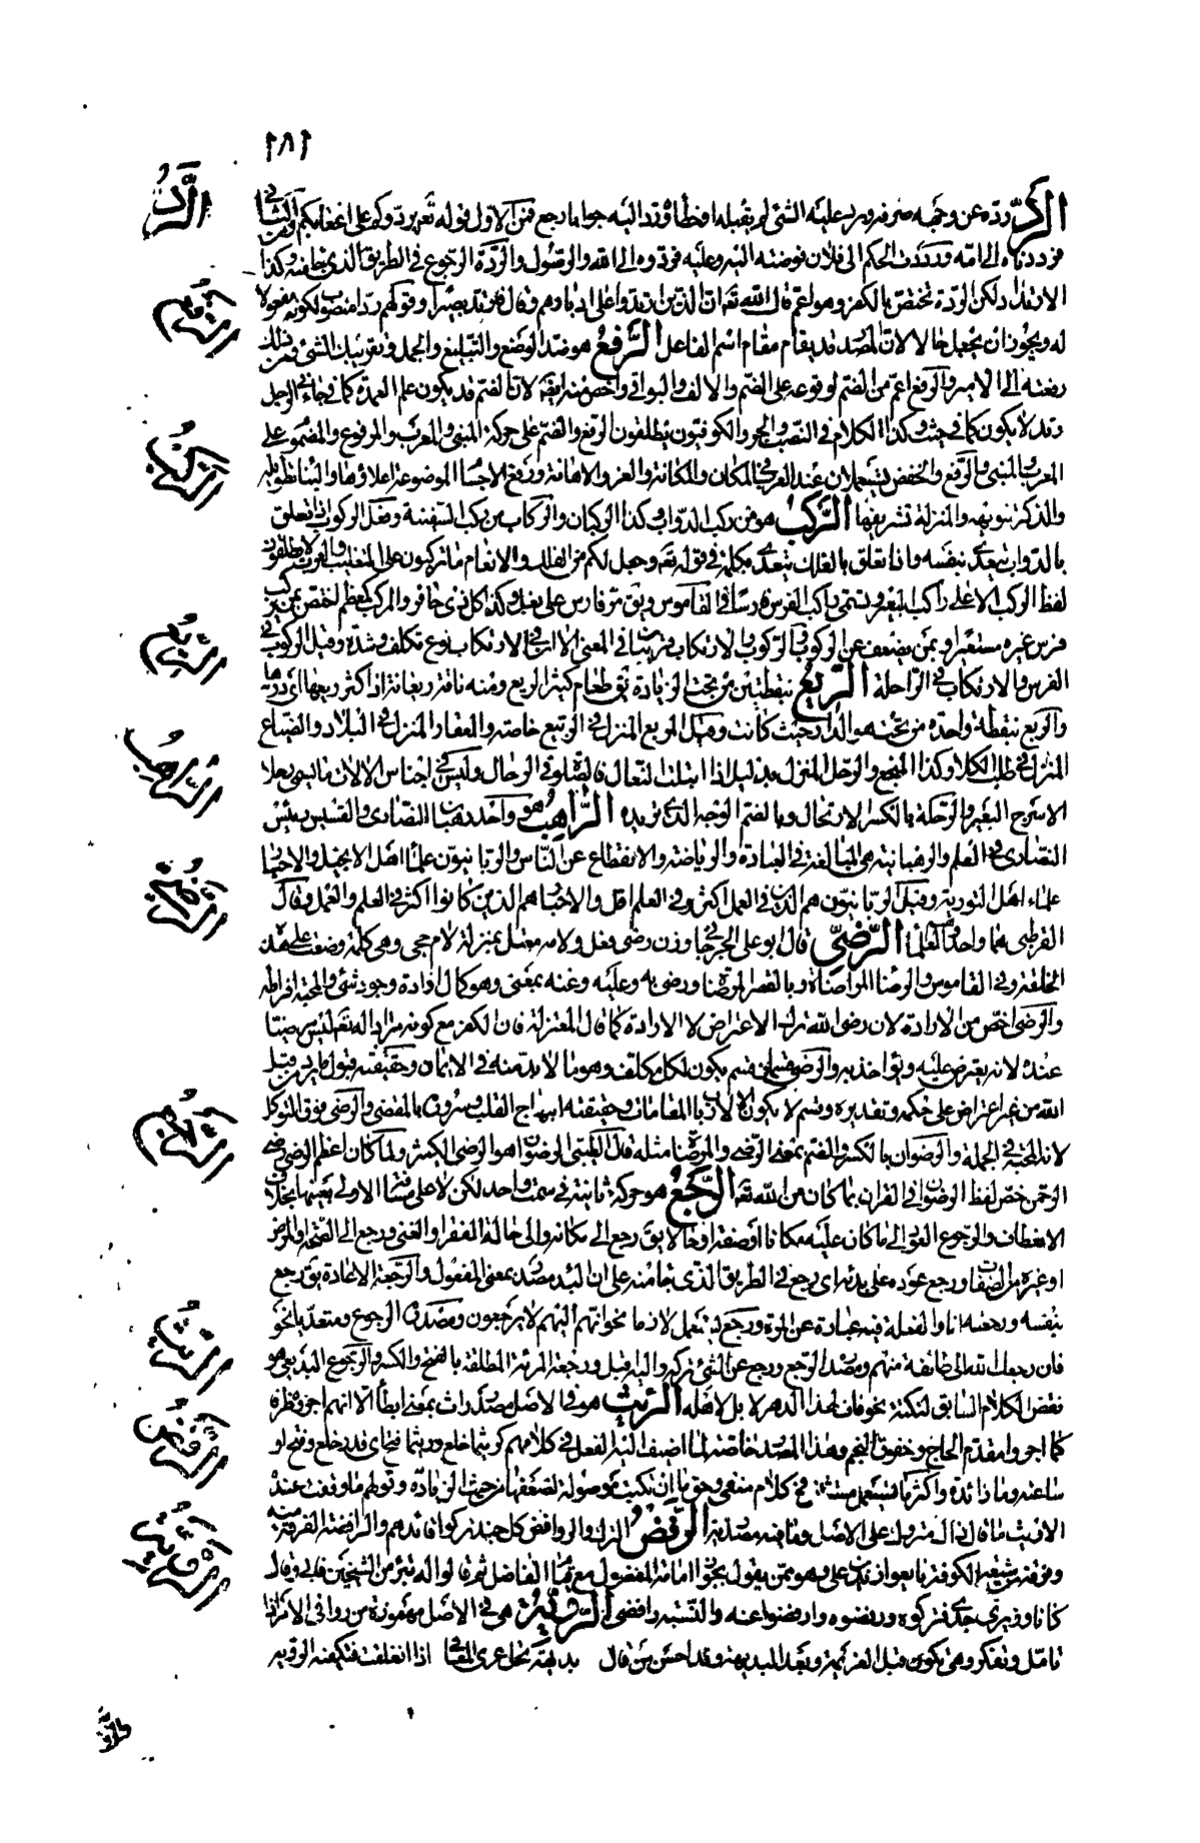 ١٨١
الرد
الرد رده عن وجهه صرفه ورد عليه الشئ لم يقبله او خطأه ورد اليه جوابا رجع فمن الاول قوله تعالى يردوكم على اعقابكم ومن الثاني
فرددناه الى امه ورددت الحكم الى فلان فوضته اليه وعليه فردوه الى الله والرسول والردة الرجوع في الطريق الذي جاء منه وكذا
الارتداد لكن الردة تختص بالكفر وهو اعم قال الله تعالى ان الذين ارتدوا على ادبارهم وقال فارتد بصيرا وقولهم ردا منصوب لكونه مفعولا
الرفع
له ويجوز ان يجعل حالا لان المصدر قد يقام مقام اسم الفاعل الرفع هو ضد الوضع والتبليغ والحمل وتقريبك الشئ ومن ذلك
رفعته الى الامير والرفع اعم من الضم لوقوعه على الضم والالف والواو واخص منه ايضا لان الضم قد يكون علم العمدة كما في جاءني الرجل
وقد لا يكون كما في حيث وكذا الكلام في النصب والجر والكوفيون يطلقون الرفع والضم على حركة المبني والمعرب والمرفوع والمضموم على
المعرب والمبني والرفع والخفض يستعملان عند العرب في المكان والمكانة والعز والاهانة ورفع الاجسام الموضوعة اعلاؤها والبناء تطويله
الركب
والذكر تنويهه والمنزلة تشريفها الركب هو من ركب الدواب وكذا الركبان والركاب من ركب السفينة وفعل الركوب اذا تعلق
بالدواب يتعدى بنفسه واذا تعلق بالفلك يتعدى بكلمة في قوله تعالى وجعل لكم من الفلك والانعام ما تركبون على التغليب والعرب لا يطلقون
لفظ الركب الا على راكب البعير وتسمي راكب الفرس فارسا في القاموس ويق مر فارس على بغل وكذا كل ذي حافر والمركب كمعظم اختص بمن يركب
فرس غيره مستعيرا وبمن يضعف عن الركوب والركوب والارتكاب قريبان في المعنى الا ان في الارتكاب نوع تكلف وشدة وقيل الركوب في
الريع
الفرس والارتكاب في الراحلة الريع بنقطتين من تحت الزيادة يق طعام كثير الريع ومنه ناقة ريعانة اذا كثر ريعها اى درها
والربع بنقطة واحدة من تحت هو الدار حيث كانت وقيل الربع المنزل في الربيع خاصة والعقار المنزل في البلاد والضياع
المنزل في طلب الكلاء وكذا المنتجع والرحل المنزل بدليل اذا ابتلت النعال فالصلوة في الرحال وليس في اجناس الالات ما يسمى رحلا
الراهب
الا سرج البعير والرحلة بالكسر الارتحال وبالضم الوجه الذي تريده الراهب هو واحد رهبان النصارى والقسيس رئيس
النصارى في العلم والرهبانية هي المبالغة في العبادة والرياضة والانقطاع عن الناس والربانيون علماء اهل الانجيل والاحبار
علماء اهل التورية وقيل الربانيون هم الذين في العمل اكثر وفي العلم اقل والاحبار هم الذين كانوا اكثر في العلم والعمل وقال
الرضى
القرطبي هما واحد وهم العلماء الرضى قال ابو علي الجرجاني وزن رضى فعل ولامه معتل بمنزلة لام حجى وهي كلمة وضعت على هذه
الخلقة وفي القاموس والرضاء المراضاة وبالقصر المرضاة ورضى به وعليه وعنه بمعنى وهو كمال ارادة وجود شئ والمحبة افراطه
والرضى اخص من الارادة لان رضى الله ترك الاعتراض لا الارادة كما قال المعتزلة فان الكفر مع كونه مرادا له تعالى ليس مرضيا
عنده لانه يعترض عليه ويؤاخذ به والرضى قسمان قسم يكون لكل مكلف وهو ما لا بد منه في الايمان وحقيقته قبول ما يرد من قبل
الله من غير اعتراض على حكمه وتقديره وقسم لا يكون الا لارباب المقامات وحقيقته ابتهاج القلب وسروره بالمقضي والرضى فوق التوكل
لانه المحبة في الجملة والرضوان بالكسر والضم بمعنى الرضى والمرضاة مثله قال الطيبي الرضوان هو الرضى الكثير ولما كان اعظم الرضى رضى
الرجع
الرحمن خص لفظ الرضوان في القران بما كان من الله تعالى الرجع هو حركة ثانية في سمت واحد لكن لا على مسافة الاولى بعينها بخلاف
الانعطاف والرجوع العود الى ما كان عليه مكانا او صفة او حالا يق رجع الى مكانه والى حالة الفقر او الغنى ورجع الى الصحة او المرض
او غيره من الصفات ورجع عوده على بدئه اى رجع في الطريق الذي جاء منه على ان البدء مصدر بمعنى المفعول والرجعة الاعادة يق رجع
بنفسه ورجعته انا والفعلة فيه عبارة عن المرة ورجع يستعمل لازما نحو انهم اليهم لا يرجعون ومصدره الرجوع ومتعديا نحو
الريث
فان رجعك الله الى طائفة منهم ومصدره الرجع ورجع عن الشئ تركه واليه اقبل ورجعة المرأة المطلقة بالفتح والكسر والرجوع البديعي هو
نقض الكلام السابق لنكتة نحو فاف لهذا الدهر لا بل لاهله الريث هو في الاصل مصدر راث بمعنى ابطأ الا انهم اجروه ظرفا
كما اجروا مقدم الحاج وخفوق النجم وهذا المصدر خاصة لما اضيف اليه الفعل في كلامهم كريثما خلع وريثما فتح اى قدر خلع وفتح او
ساعته وما زائدة واكثر ما يستعمل مستثنى في كلام منفي وحق ما ان تكتب موصولة لضعفها من حيث الزيادة وقولهم ما وقفت عنده
الرفض
الا ريث ما قال ذاك متروك على الاصل وما فيه مصدرية الرفض الترك والروافض كل جند تركوا قائدهم والرافضة الفرقة منه
وفرقة من شيعة الكوفة بايعوا زيد بن علي وهو ممن يقول بجواز امامة المفضول مع قيام الفاضل ثم قالوا له تبرأ من الشيخين فابى وقال
الروية
كانا وزيري جدي فتركوه ورفضوه وارفضوا عنه والنسبة رافضي الروية هي في الاصل مهموزة من روأ في الامر اذا
تأمل وتفكر وهي تكون قبل العزيمة وبعد البديهة وقد احسن من قال بديهته تحل عرى المعاني اذا انغلقت فتكفيه الروية